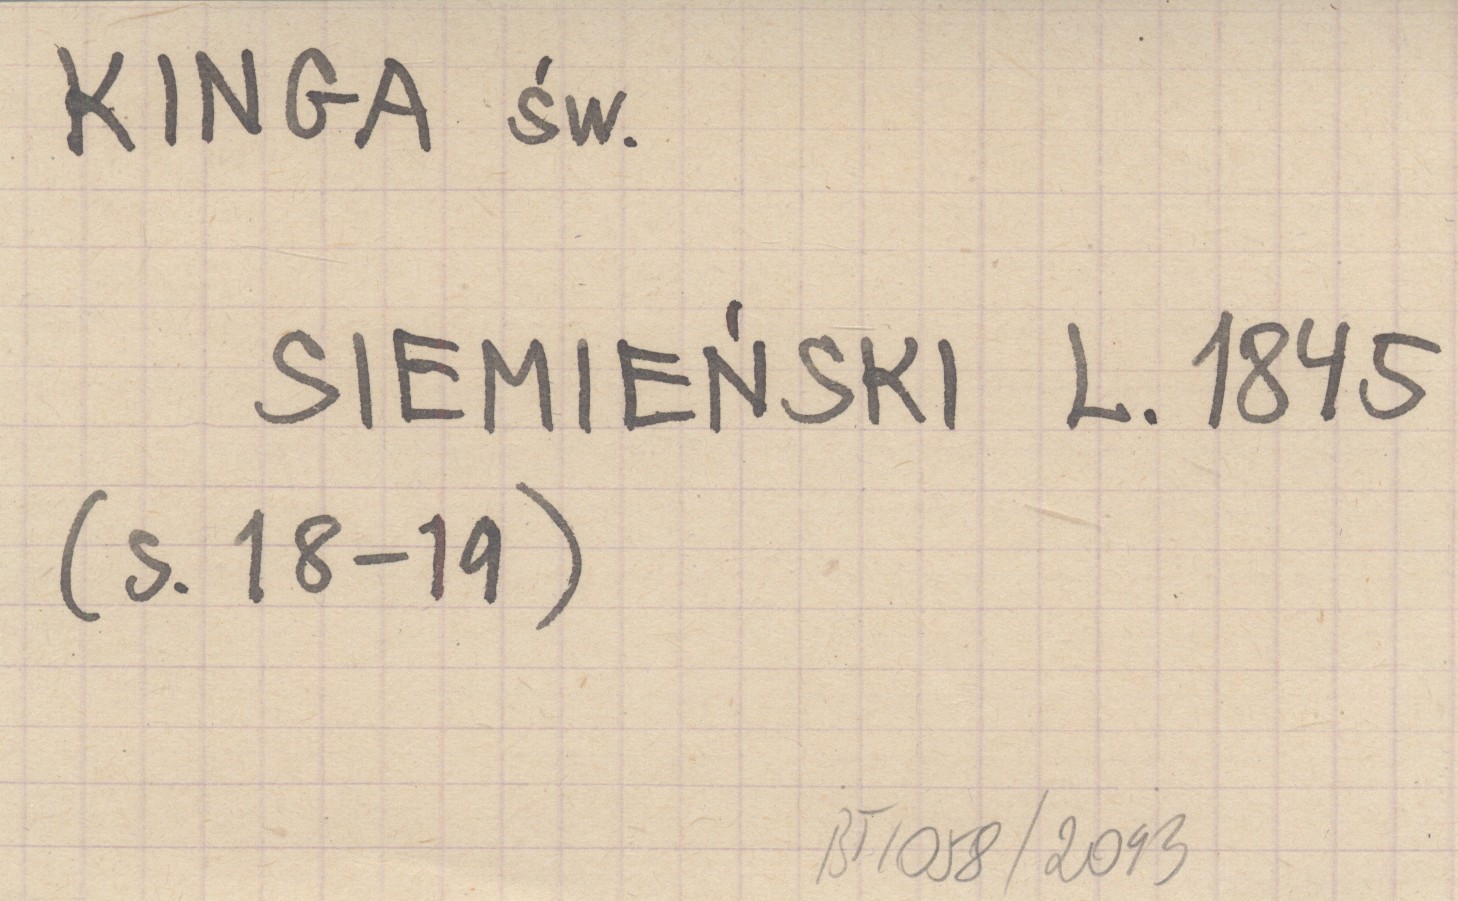 KINGA św.
SIEMIEŃSKI L. 1845
(s. 18-19)
BT1058/2093